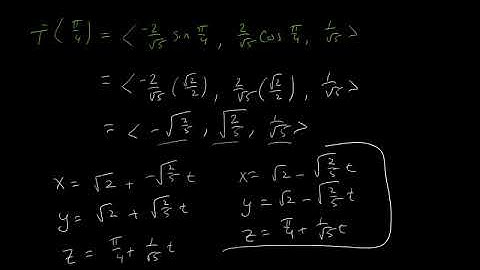 T̄(π/4) = < -2/√5 sin π/4, 2/√5 cos π/4, 1/√5 >
= < -2/√5 (√2/2), 2/√5 (√2/2), 1/√5 >
= < -√(2/5), √(2/5), 1/√5 >
x = √2 + -√(2/5) t
y = √2 + √(2/5) t
z = π/4 + 1/√5 t
x = √2 - √(2/5) t
y = √2 - √(2/5) t
z = π/4 + 1/√5 t